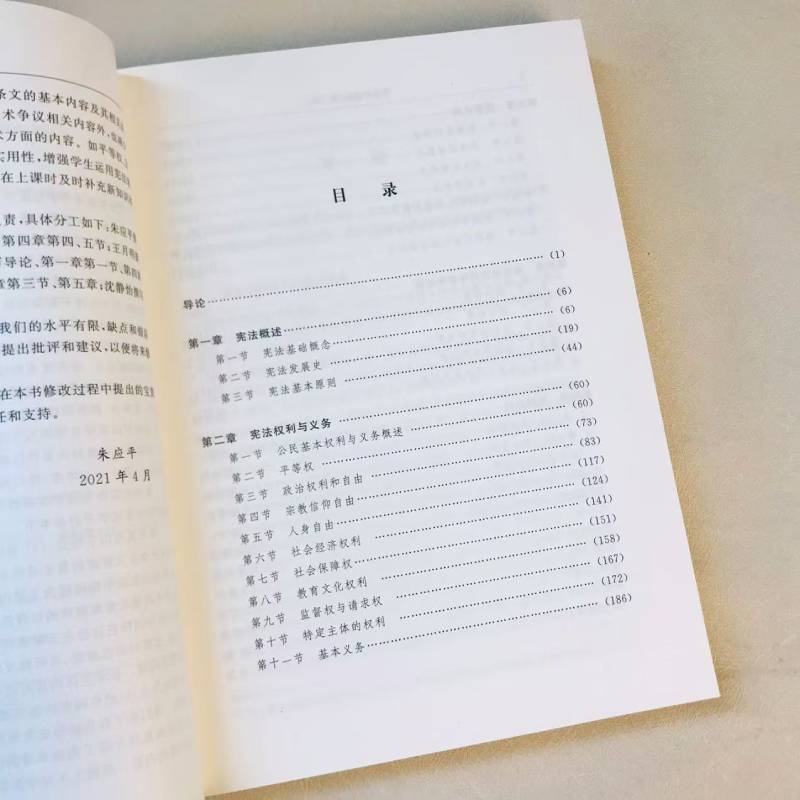 条文的基本内容及其相关
术争议相关内容外,
方面的内容。如平等权、
实用性,增强学生运用宪法
在上课时及时补充新知识
责,具体分工如下:朱应平
第四章第四、五节;王月明
导论、第一章第一节、第四
章第三节、第五章;沈静怡
我们的水平有限,缺点和
提出批评和建议,以便将来
在本书修改过程中提出的宝
任和支持。
朱应平
2021年4月
目 录
导论……………………(1)
第一章 宪法概述……………………(6)
第一节 宪法基础概念……………………(6)
第二节 宪法发展史……………………(19)
第三节 宪法基本原则……………………(44)
第二章 宪法权利与义务……………………(60)
第一节 公民基本权利与义务概述……………………(60)
第二节 平等权……………………(73)
第三节 政治权利和自由……………………(83)
第四节 宗教信仰自由……………………(117)
第五节 人身自由……………………(124)
第六节 社会经济权利……………………(141)
第七节 社会保障权……………………(151)
第八节 教育文化权利……………………(158)
第九节 监督权与请求权……………………(167)
第十节 特定主体的权利……………………(172)
第十一节 基本义务……………………(186)